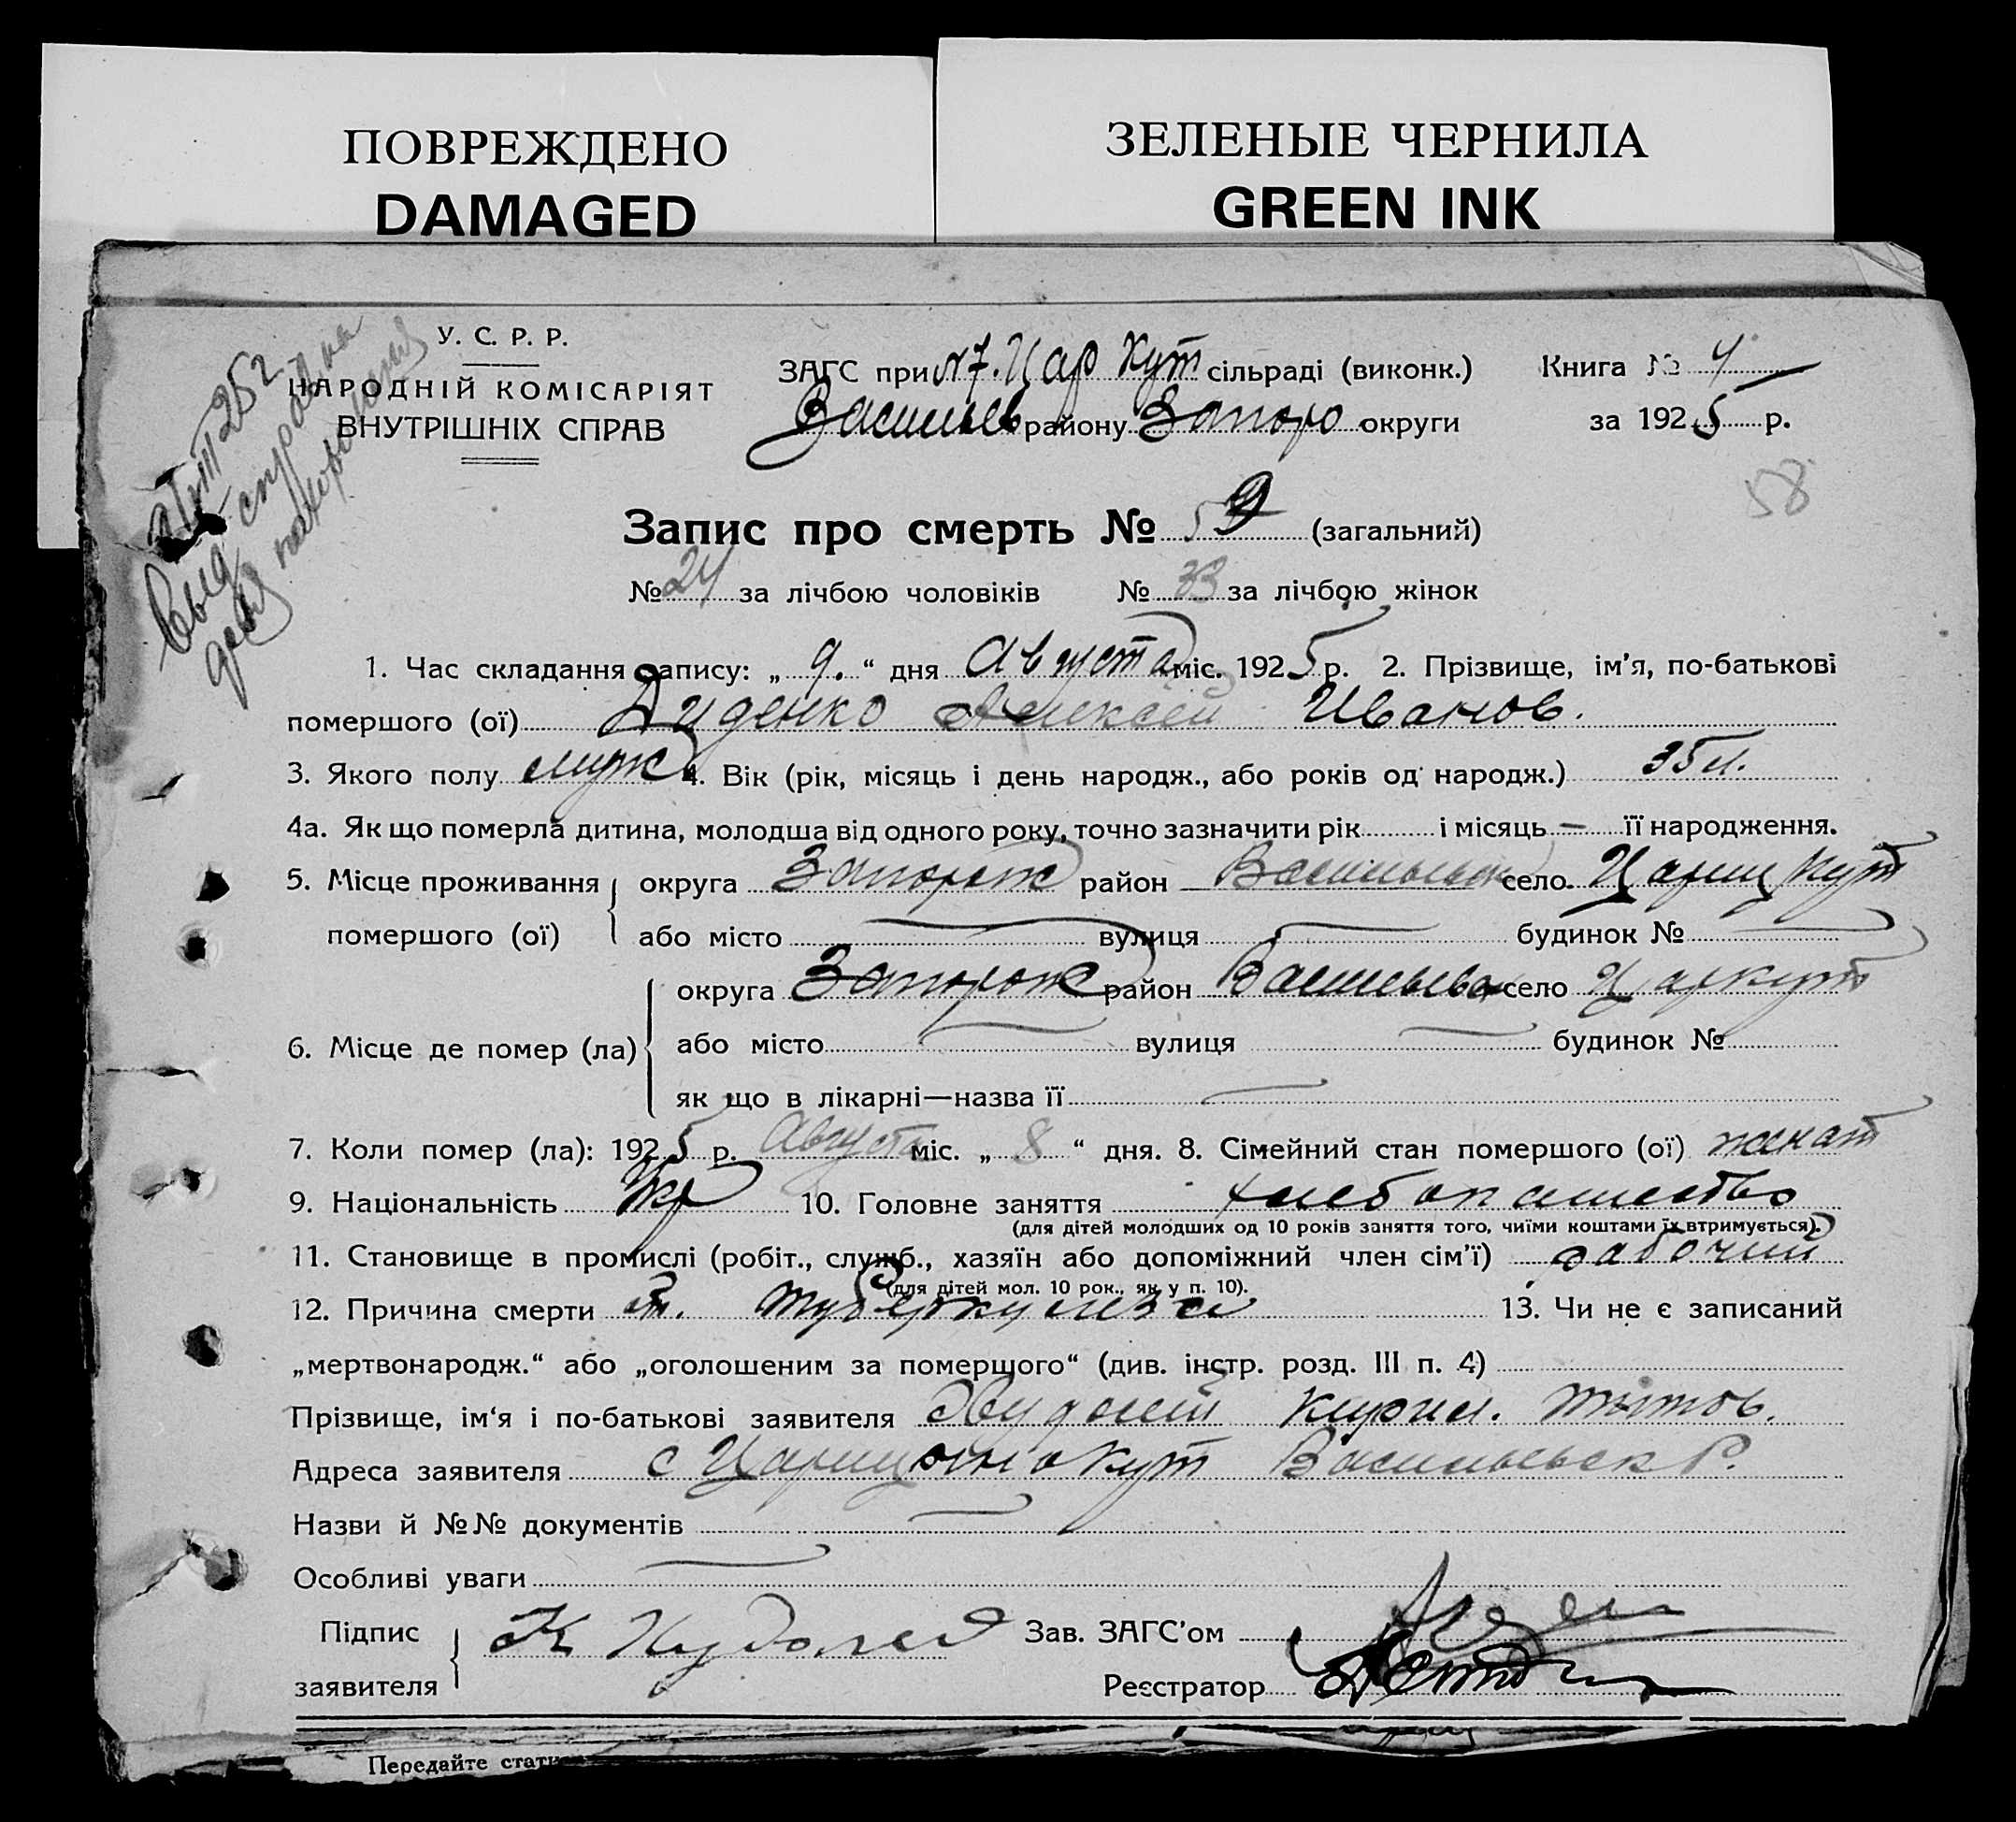 ПОВРЕЖДЕНО
DAMAGED
ЗЕЛЕНЫЕ ЧЕРНИЛА
GREEN INK
У. С. Р. Р.
НАРОДНІЙ КОМІСАРІЯТ
ВНУТРІШНІХ СПРАВ
25 г.
Выд справка
для похорон
ЗАГС при №7. Цар Кут сільраді (виконк.) Книга № 4
Васильев району Запоро округи за 1925 р.
58
Запис про смерть № 59 (загальний)
№ 24 за лічбою чоловіків № 33 за лічбою жінок
1. Час складання запису: „ 9. “ дня Августа міс. 1925 р. 2. Прізвище, ім'я, по-батькові
помершого (ої) Диденко Алексей Иванов.
3. Якого полу муж 4. Вік (рік, місяць і день народж., або років од народж.) 35 л.
4а. Як що померла дитина, молодша від одного року, точно зазначити рік і місяць — її народження.
5. Місце проживання помершого (ої) округа Запорож район Васильевск село Цариц Кут
або місто вулиця будинок №
6. Місце де помер (ла) округа Запорож район Васильевск село Царкут
або місто вулиця будинок №
як що в лікарні—назва її
7. Коли помер (ла): 1925 р. Августа міс. „ 8 “ дня. 8. Сімейний стан помершого (ої) женат
9. Національність Укр 10. Головне заняття хлебопашество
(для дітей молодших од 10 років заняття того, чиїми коштами їх втримується).
11. Становище в промислі (робіт., служб., хазяїн або допоміжний член сім'ї) рабочий
(для дітей мол. 10 рок., як у п. 10).
12. Причина смерти от. туберкулеза 13. Чи не є записаний
„мертвонародж.“ або „оголошеним за помершого“ (див. інстр. розд. III п. 4)
Прізвище, ім'я і по-батькові заявителя Кирил. Титов.
Адреса заявителя с Царицынокут Васильевск Р.
Назви й №№ документів
Особливі уваги
Підпис заявителя К Зав. ЗАГС'ом
Реєстратор
Передайте стати